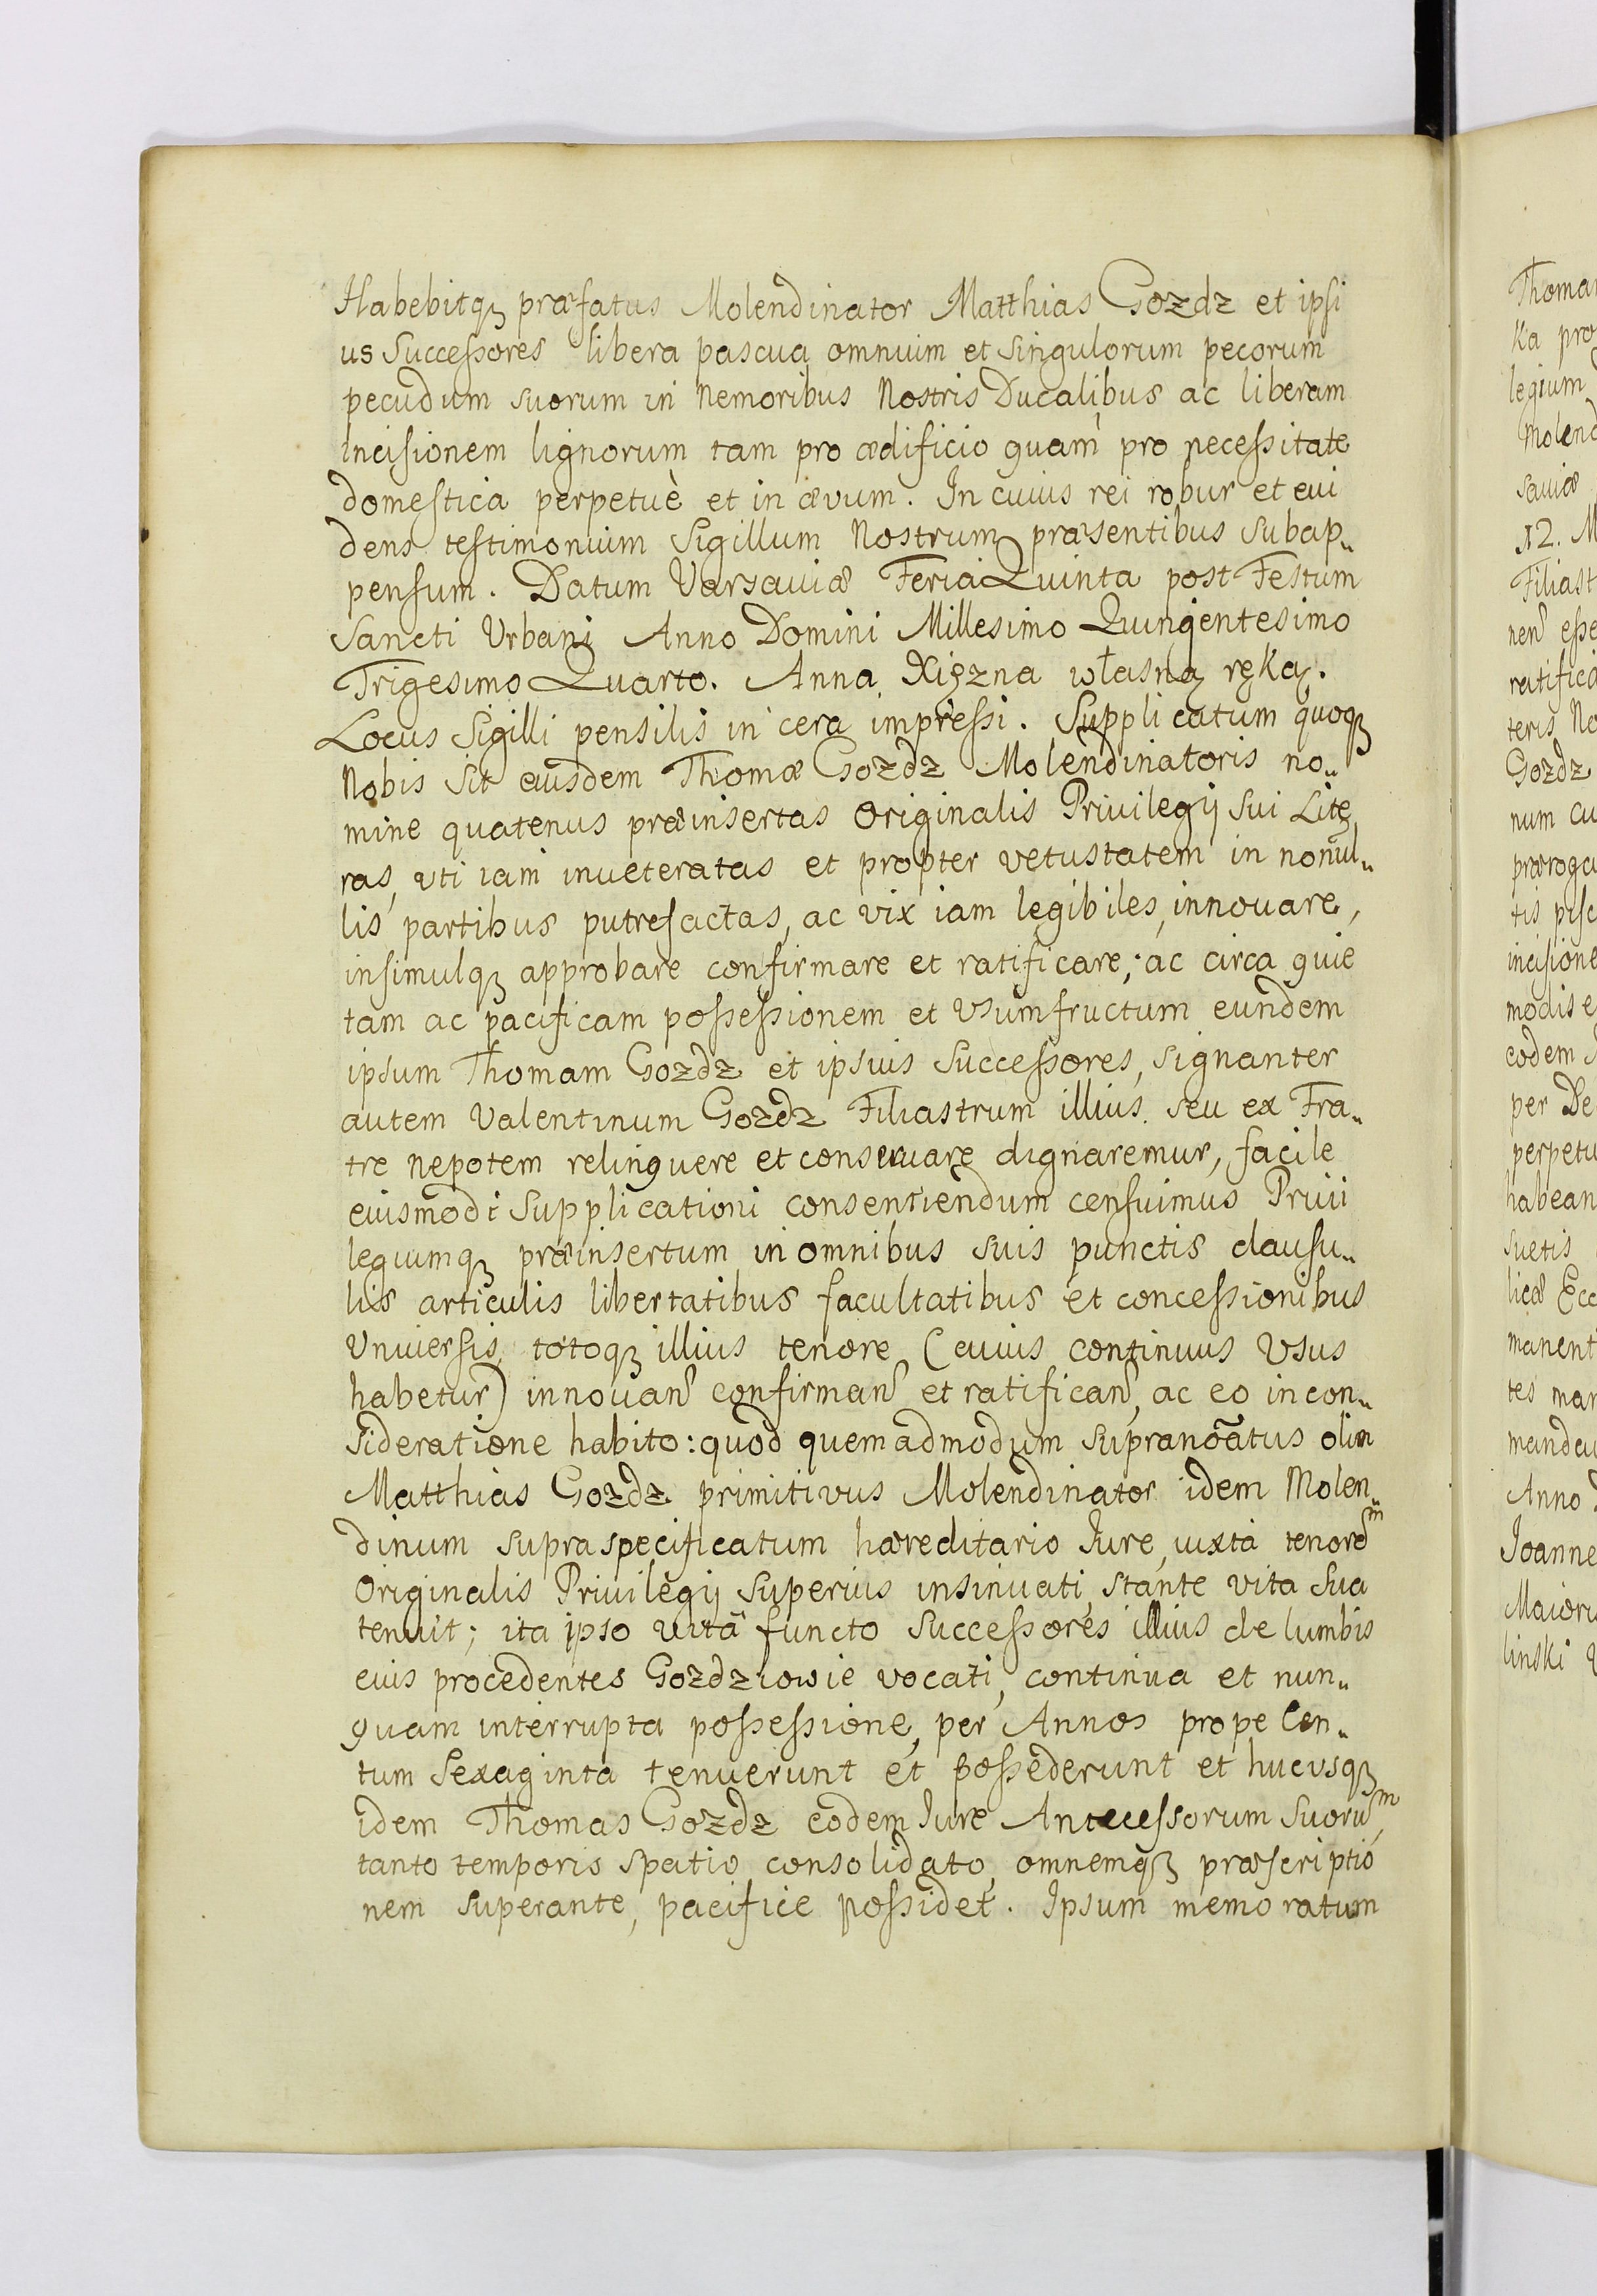 Habebitqꝫ præfatus Molendinator Matthias Gozdz et ipsi
us Successores libera pascua omnium et singulorum pecorum
pecudum suorum in Nemoribus Nostris Ducalibus ac liberam
incisionem lignorum tam pro ædificio quam pro necessitate
domestica perpetuè et in ævum. In cuius rei robur et evi
dens testimonium Sigillum Nostrum præsentibus subap„
pensum. Datum Varsaviæ Feria Quinta post Festum
Sancti Urbani Anno Domini Millesimo Quingentesimo
Trigesimo Quarto. Anna Xięzna własną ręką.
Locus Sigilli pensilis in cera impressi. Supplicatum quoqꝫ
Nobis sit eiusdem Thomæ Gozdz Molendinatoris no„
mine quatenus præinsertas Originalis Privilegij sui Lite
ras, vti iam inveteratas et propter vetustatem in nonul„
lis partibus putrefactas, ac vix iam legibiles, innovare,
insimulqꝫ approbare confirmare et ratificare; ac circa quie
tam ac pacificam possessionem et Usumfructum eundem
ipsum Thomam Gozdz et ipsius Successores, signanter
autem Valentinum Gozdz Filiastrum illius seu ex Fra„
tre Nepotem relinquere et conservare dignaremur, facile
eiusmodi Supplicationi consentiendum censuimus Privi
legiumqꝫ præinsertum in omnibus suis punctis clausu„
lis articulis libertatibus facultatibus et concessionibus
Universis, totoqꝫ illius tenore (cuius continuus Usus
habetur) innovan͂ confirman͂ et ratifican͂, ac eo in con„
sideratione habito: quod quemadmodum supranoãtus olim
Matthias Gozdz primitivus Molendinator idem Molen„
dinum supraspecificatum hæreditario Iure, iuxta tenorem
Originalis Privilegij Superius insinuati, stante vita sua
tenuit; ita ipso vitâ functo Successores illius de lumbis
eius procedentes Gozdziowie vocati, continua et nun„
quam interrupta possessione, per Annos prope Cen„
tum Sexaginta tenuerunt et possederunt et hucusqꝫ
idem Thomas Gozdz eodem Iure Antecessorum Suorum,
tanto temporis spatio consolidato, omnemqꝫ præscriptio
nem superante, pacifice possidet. Ipsum memoratum
Thoma
Ka pro
legium
Molend
saviæ
12. M
Filiast
nen͂ esse
ratifica
teris No
Gozdz
num cu
præroga
tis pisc
incisione
modis e
eodem
per De
perpetu
habean
suetis
licæ Ecc
manent
tes man
mandav
Anno
Joanne
Maioru
linski